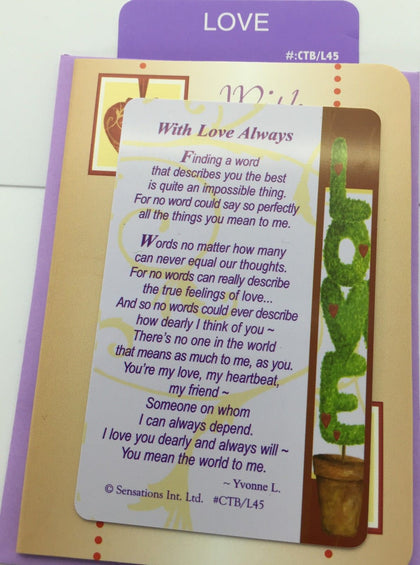 LOVE
#:CTB/L45
With
With Love Always
Finding a word
that describes you the best
is quite an impossible thing.
For no word could say so perfectly
all the things you mean to me.
Words no matter how many
can never equal our thoughts.
For no words can really describe
the true feelings of love...
And so no words could ever describe
how dearly I think of you ~
There's no one in the world
that means as much to me, as you.
You're my love, my heartbeat,
my friend ~
Someone on whom
I can always depend.
I love you dearly and always will ~
You mean the world to me.
~ Yvonne L.
© Sensations Int. Ltd. #CTB/L45